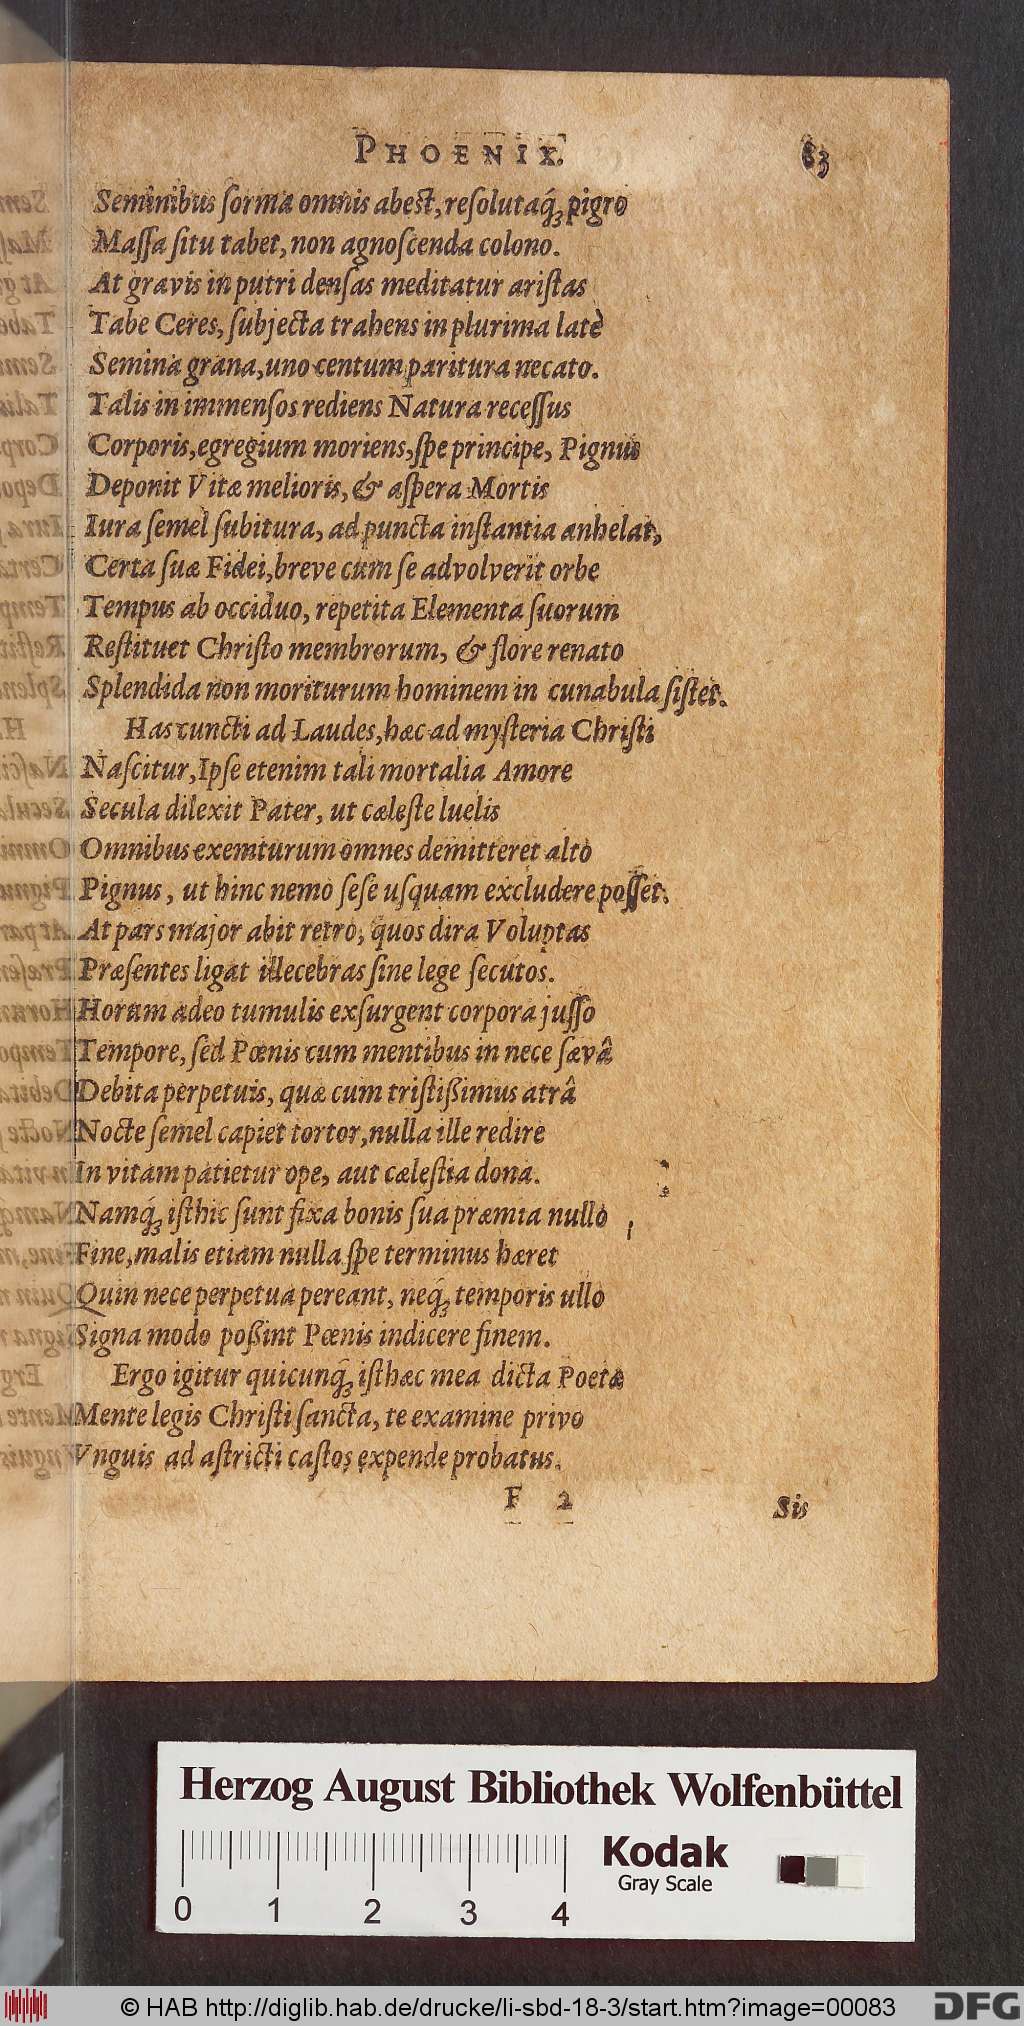 PHOENIX. 83
Seminibus forma omnis abest, resolutaq́; pigro
Massa situ tabet, non agnoscenda colono.
At gravis in putri densas meditatur aristas
Tabe Ceres, subjecta trahens in plurima latè
Semina grana, uno centum paritura necato.
Talis in immensos rediens Natura recessus
Corporis, egregium moriens, spe principe, Pignus
Deponit Vitæ melioris, & aspera Mortis
Iura semel subitura, ad puncta instantia anhelat,
Certa suæ Fidei, breve cum se advolverit orbe
Tempus ab occiduo, repetita Elementa suorum
Restituet Christo membrorum, & flore renato
Splendida non moriturum hominem in cunabula sistet.
Has cuncti ad Laudes, hæc ad mysteria Christi
Nascitur, Ipse etenim tali mortalia Amore
Secula dilexit Pater, ut cæleste luelis
Omnibus exemturum omnes demitteret alto
Pignus, ut hinc nemo sese usquam excludere posset.
At pars major abit retrò, quos dira Voluptas
Præsentes ligat illecebras sine lege secutos.
Horum adeo tumulis exsurgent corpora jusso
Tempore, sed Pœnis cum mentibus in nece sævâ
Debita perpetuis, quæ cum tristißimus atrâ
Nocte semel capiet tortor, nulla ille redire
In vitam patietur ope, aut cælestia dona.
Namq́; isthic sunt fixa bonis sua præmia nullo
Fine, malis etiam nulla spe terminus hæret
Quin nece perpetua pereant, neq́; temporis ullo
Signa modo poßint Pœnis indicere finem.
Ergo igitur quicunq́; isthæc mea dicta Poetæ
Mente legis Christi sancta, te examine privo
Vnguis ad astricti castos expende probatus.
F 2 Sis
Herzog August Bibliothek Wolfenbüttel
Kodak
Gray Scale
0 1 2 3 4
© HAB http://diglib.hab.de/drucke/li-sbd-18-3/start.htm?image=00083
DFG